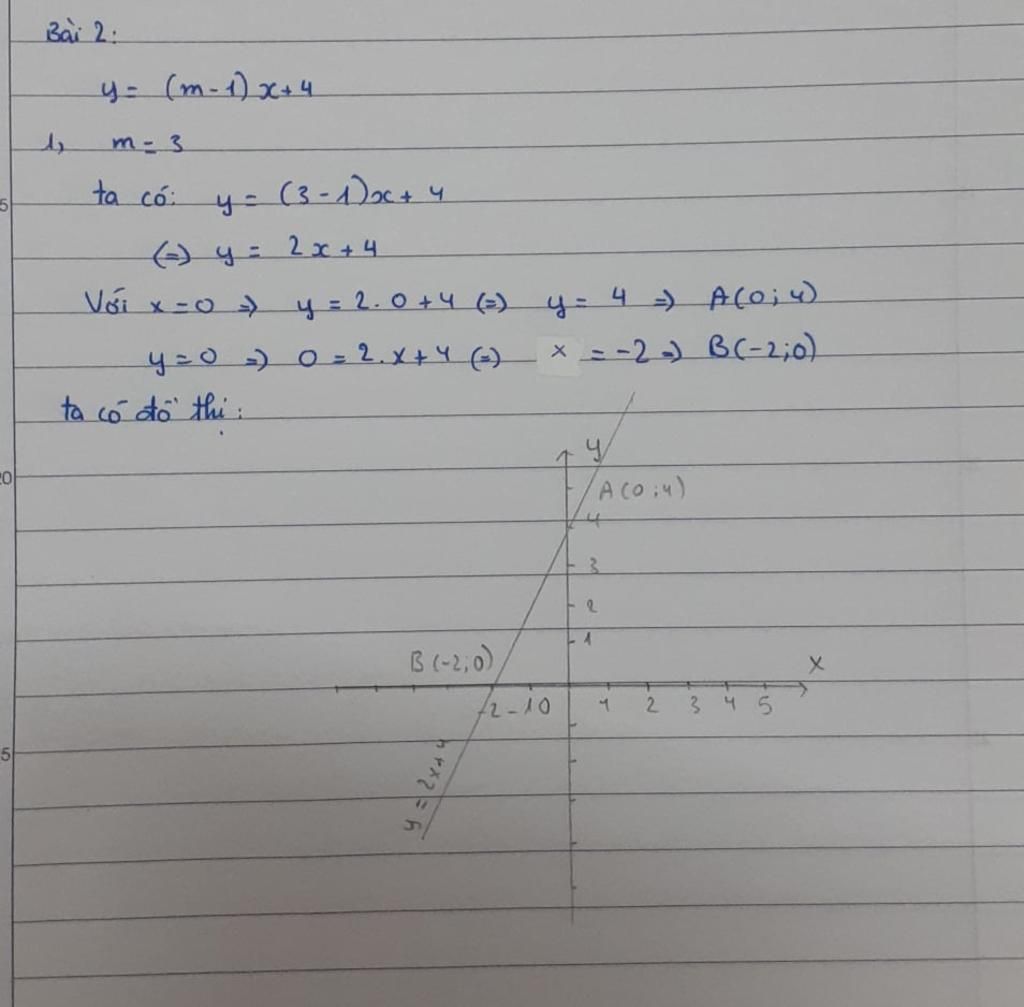 Bài 2:
y = (m-1)x+4
1, m = 3
ta có: y = (3-1)x+4
(=) y = 2x+4
Với x=0 => y = 2.0+4 (=) y = 4 => A(0;4)
y=0 => 0=2.x+4 (=) x = -2 => B(-2;0)
ta có đồ thị:
y
A(0;4)
4
3
2
1
B(-2;0)
x
-2 -1 0 1 2 3 4 5
y = 2x+4
5
20
5